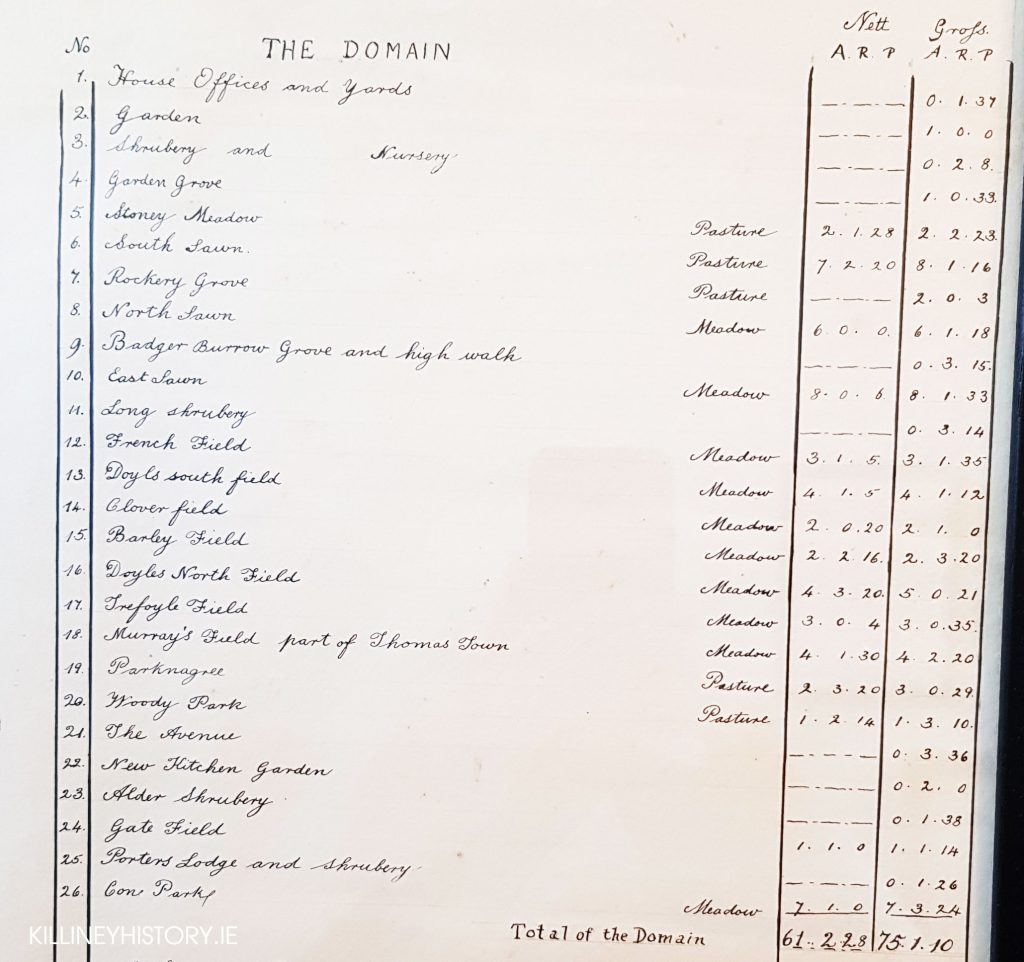 Nett Gross.
No THE DOMAIN A. R. P A. R. P
1. House Offices and Yards —.—.— 0. 1. 37
2. Garden —.—.— 1. 0. 0
3. Shrubery and Nursery —.—.— 0. 2. 8.
4. Garden Grove —.—.— 1. 0. 33.
5. Stoney Meadow Pasture 2. 1. 28 2. 2. 23.
6. South Lawn. Pasture 7. 2. 20 8. 1. 16
7. Rockery Grove Pasture —.—.— 2. 0. 3
8. North Lawn Meadow 6. 0. 0. 6. 1. 18
9. Badger Burrow Grove and high walk —.—.— 0. 3. 15.
10. East Lawn Meadow 8. 0. 6. 8. 1. 33
11. Long shrubery —.—.— 0. 3. 14
12. French Field Meadow 3. 1. 5. 3. 1. 35
13. Doyls south field Meadow 4. 1. 5 4. 1. 12
14. Clover field Meadow 2. 0. 20 2. 1. 0
15. Barley Field Meadow 2. 2 16. 2. 3. 20
16. Doyles North Field Meadow 4. 3. 20. 5. 0. 21
17. Trefoyle Field Meadow 3. 0. 4 3. 0. 35.
18. Murray's Field part of Thomas Town Meadow 4. 1. 30 4. 2. 20
19. Parknagree Pasture 2. 3. 20 3. 0. 29.
20. Woody Park Pasture 1. 2. 14 1. 3. 10.
21. The Avenue —.—.— 0. 3. 36
22. New Kitchen Garden —.—.— 0. 2. 0
23. Alder Shrubery —.—.— 0. 1. 38
24. Gate Field 1. 1. 0 1. 1. 14
25. Porters Lodge and shrubery —.—.— 0. 1. 26
26. Con Park Meadow 7. 1. 0 7. 3. 24
Total of the Domain 61. 2. 28 75. 1. 10
KILLINEYHISTORY.IE